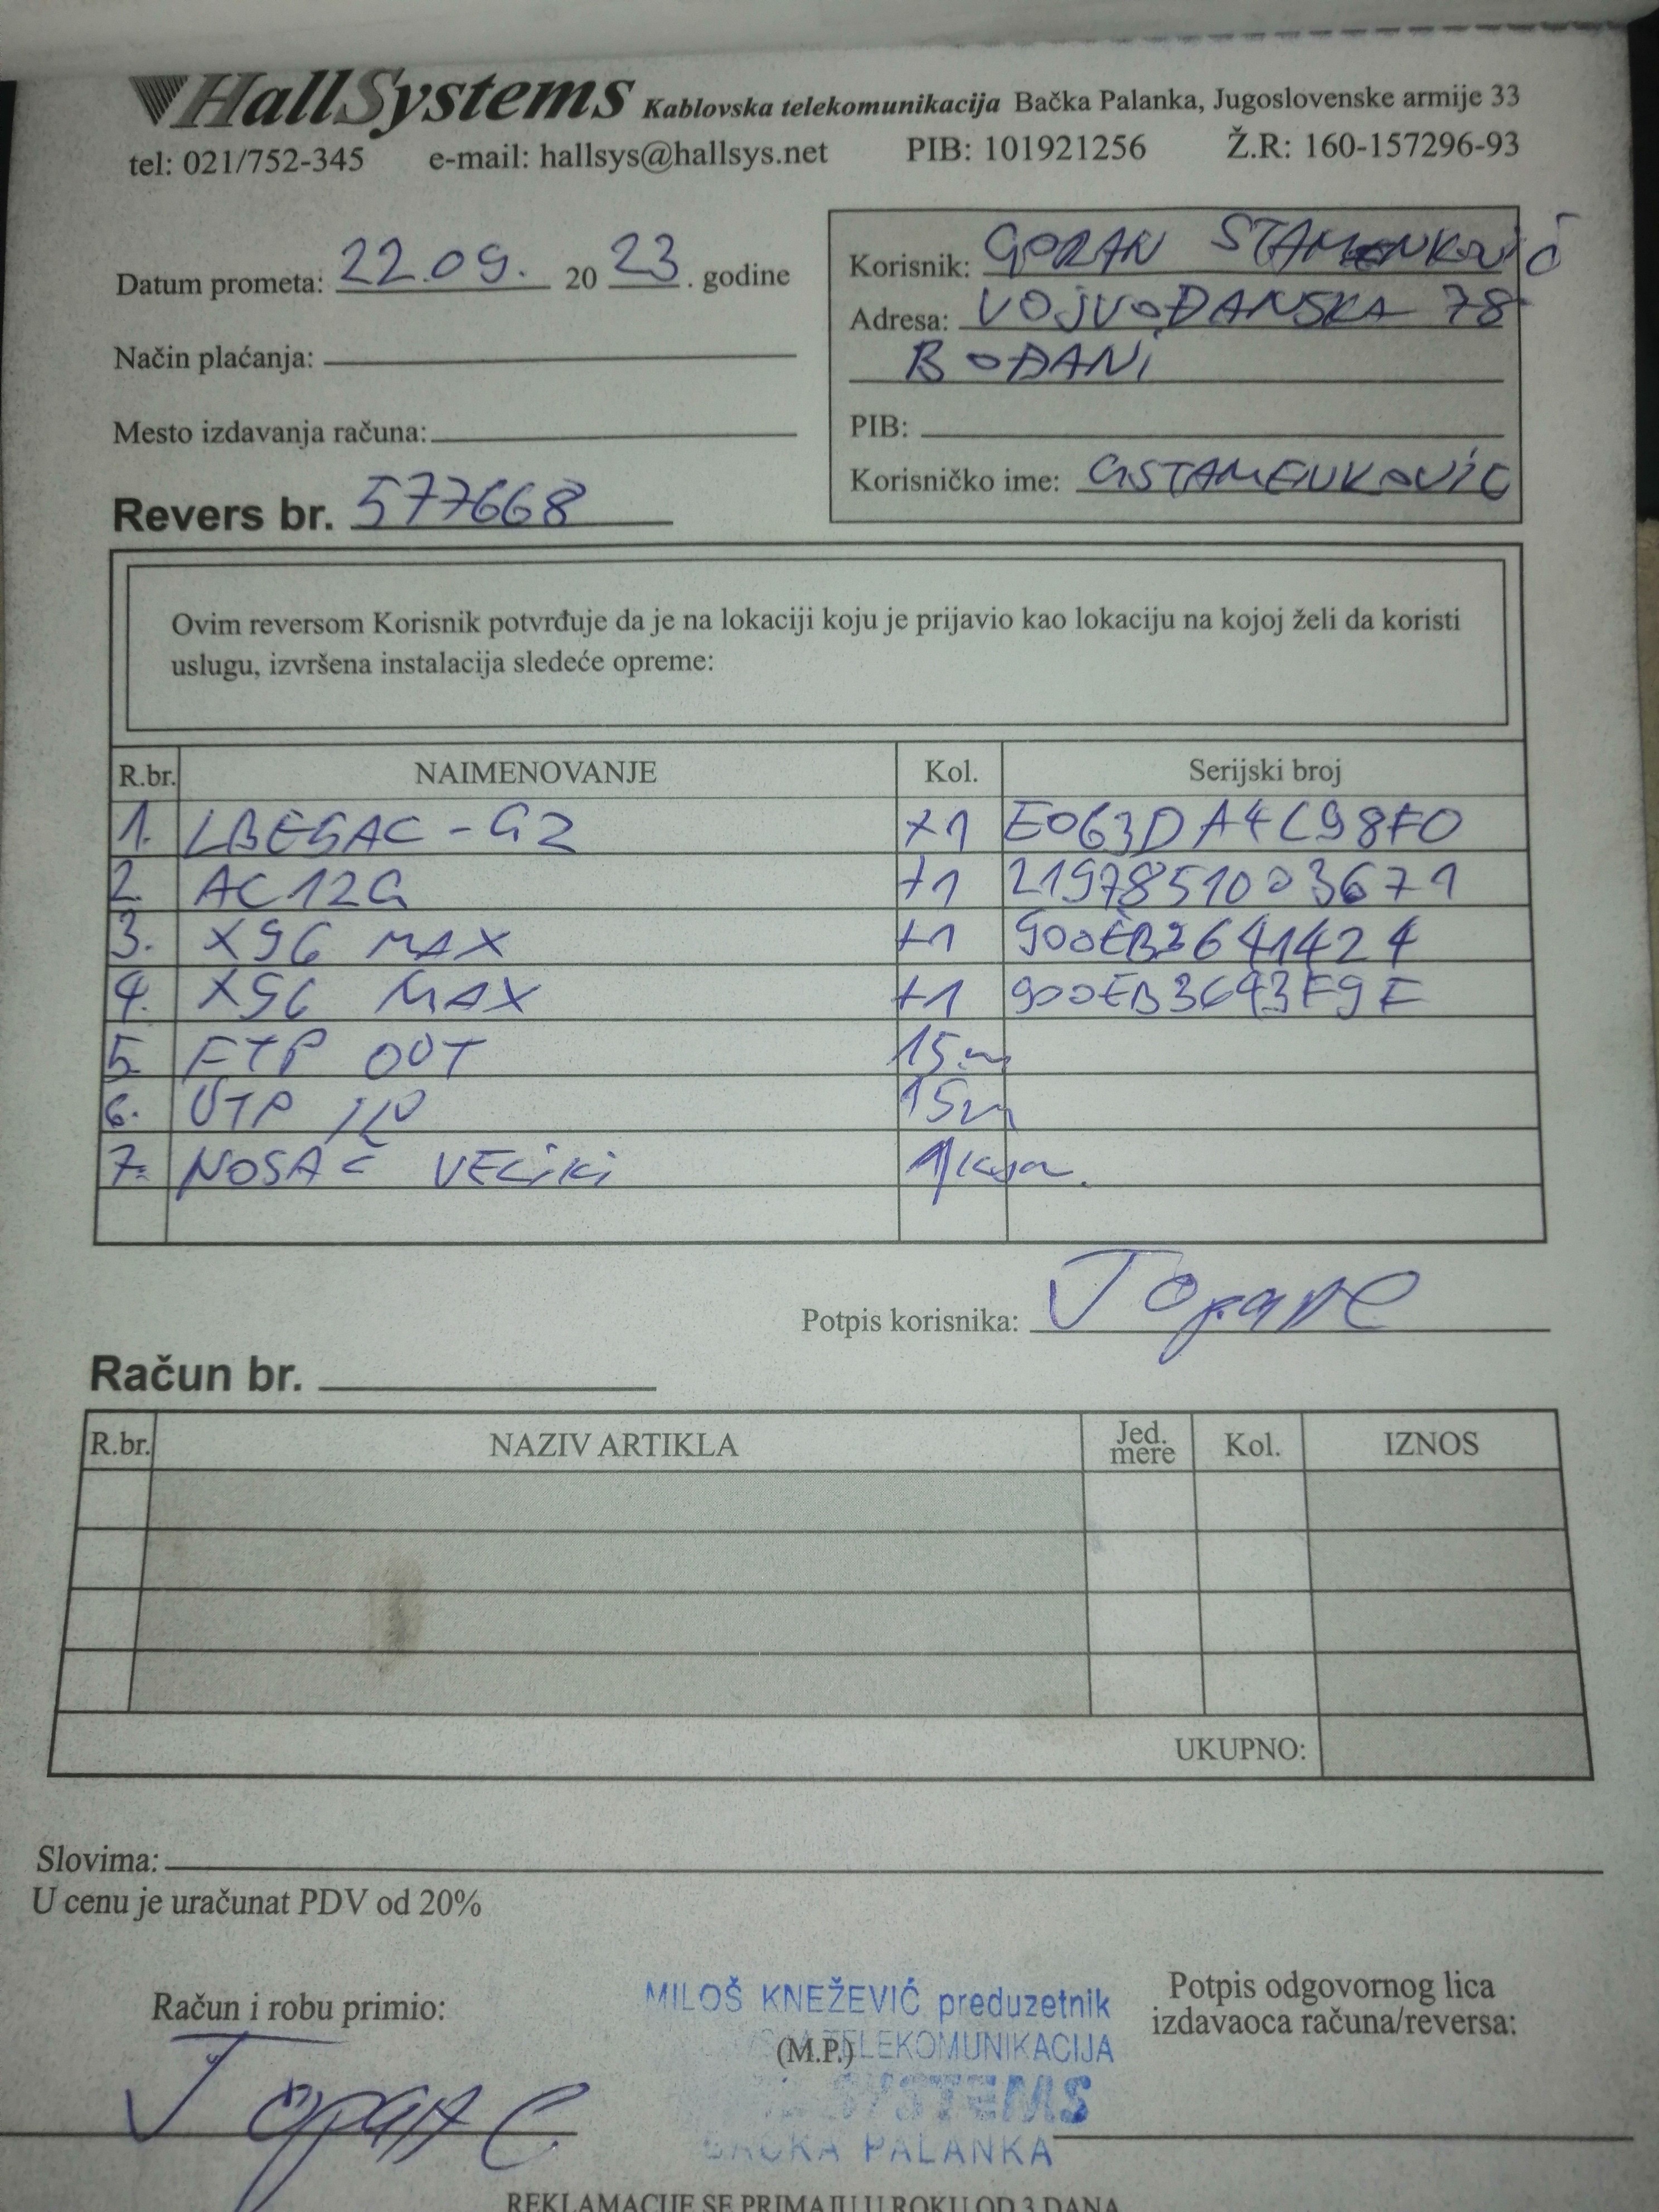 HallSystems Kablovska telekomunikacija Bačka Palanka, Jugoslovenske armije 33
tel: 021/752-345 e-mail: hallsys@hallsys.net PIB: 101921256 Ž.R: 160-157296-93
Datum prometa: 22.09. 20 23. godine
Način plaćanja:
Mesto izdavanja računa:
Revers br. 577668
Korisnik: GORAN STAMENKOVIĆ
Adresa: VOJVOĐANSKA 78
BOĐANI
PIB:
Korisničko ime: GSTAMENKOVIC
Ovim reversom Korisnik potvrđuje da je na lokaciji koju je prijavio kao lokaciju na kojoj želi da koristi
uslugu, izvršena instalacija sledeće opreme:
R.br. NAIMENOVANJE Kol. Serijski broj
1. LBE5AC-G2 +1 E063DA4C98F0
2. AC12G +1 2197851003671
3. X96 MAX +1 900EB3641424
4. X96 MAX +1 900EB3643F9F
5. FTP OUT 15m
6. UTP 15m
7. NOSAČ VELIKI 1 kom.
Potpis korisnika:
Račun br.
R.br. NAZIV ARTIKLA Jed. mere Kol. IZNOS
UKUPNO:
Slovima:
U cenu je uračunat PDV od 20%
Račun i robu primio:
MILOŠ KNEŽEVIĆ preduzetnik
(M.P.) TELEKOMUNIKACIJA
SYSTEMS
BAČKA PALANKA
Potpis odgovornog lica
izdavaoca računa/reversa:
REKLAMACIJE SE PRIMAJU U ROKU OD 3 DANA